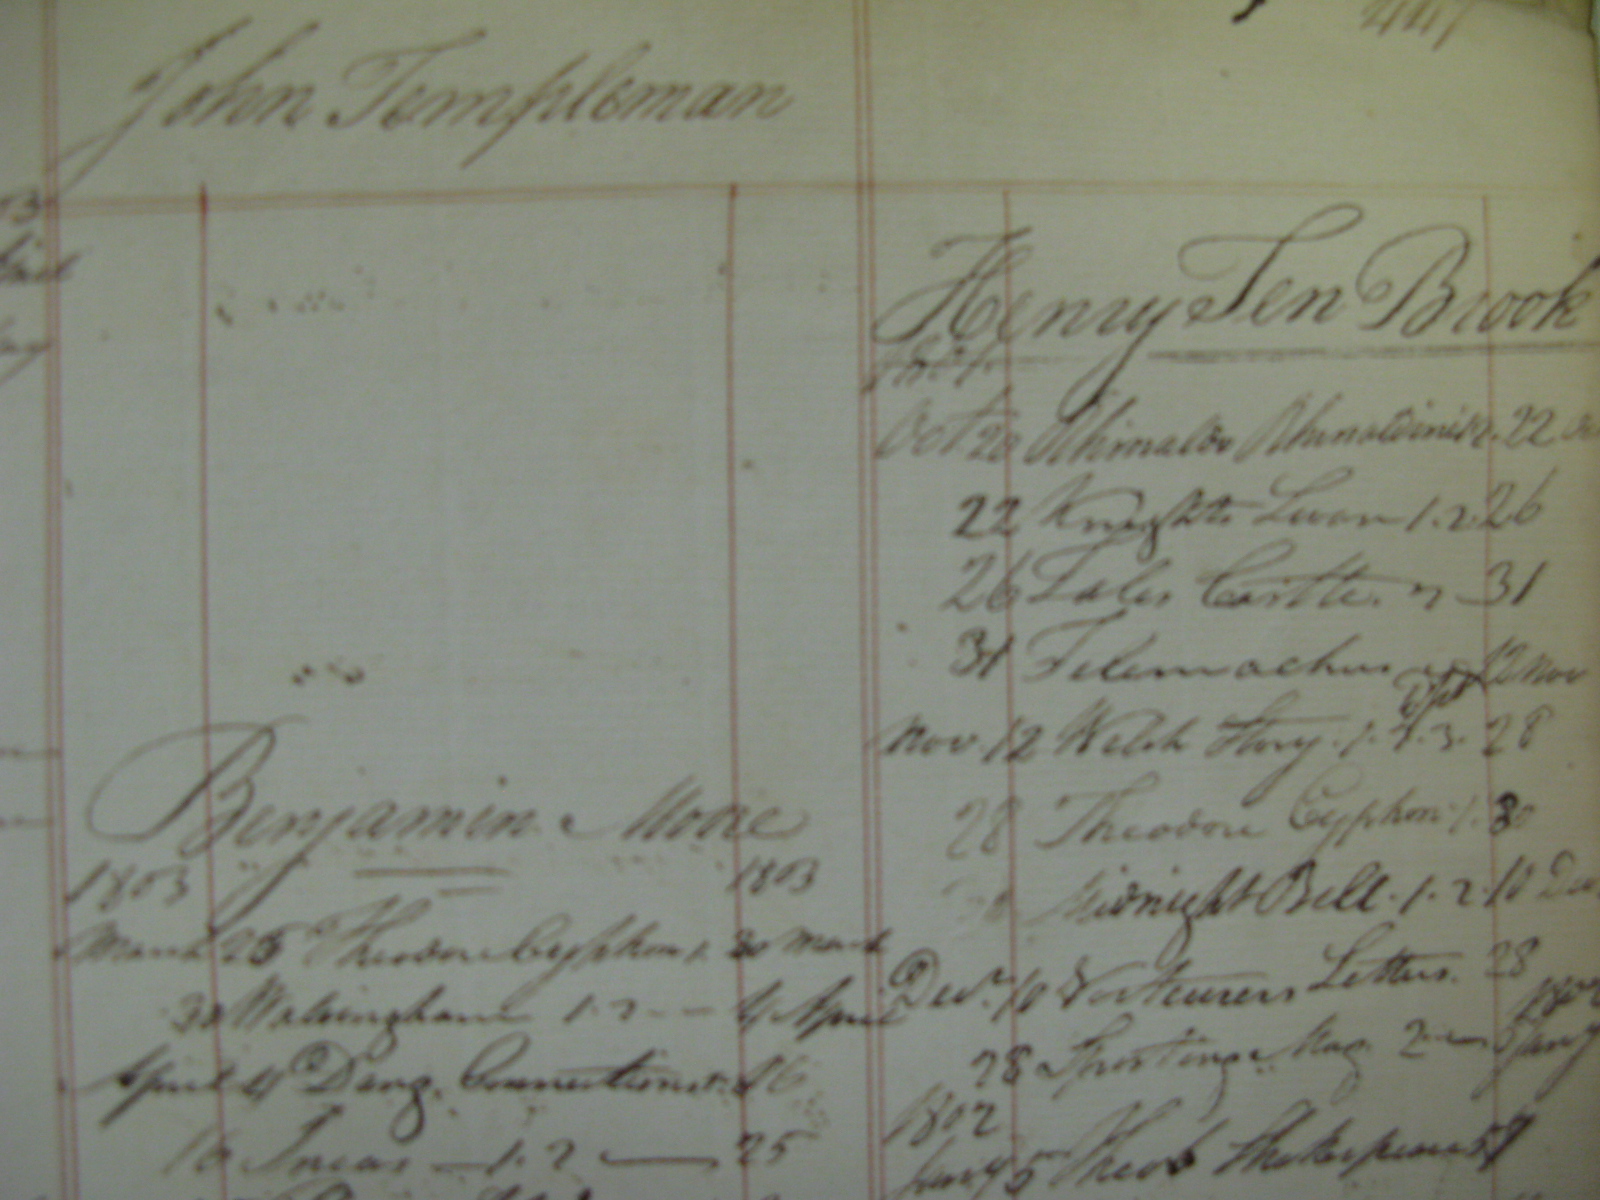 John Templeman
Benjamin Moore
1803 1803
March 25 Theodore Cyphon 1. 30 March
30 Walsingham 1.2 -- 4 April
April 4 Dang. Connections. 16
16 Incas — 1.2 — 25
Henry Ten Brook
Oct 20 Rhinaldo Rhinaldini 1.2. 22
22 Knights Swan 1.2. 26
26 Tales Castle. 31
31 Telemachus 12 Nov
Nov. 12 Welch Story. 1.2.3. 28
28 Theodore Cyphon 1. 30
30 Midnight Bell. 1.2. 10 Dec
Decr. 10 Letters. 28
28 Sporting Mag. 2 — 5 Jany
1802
Jany 5 Shakespeare